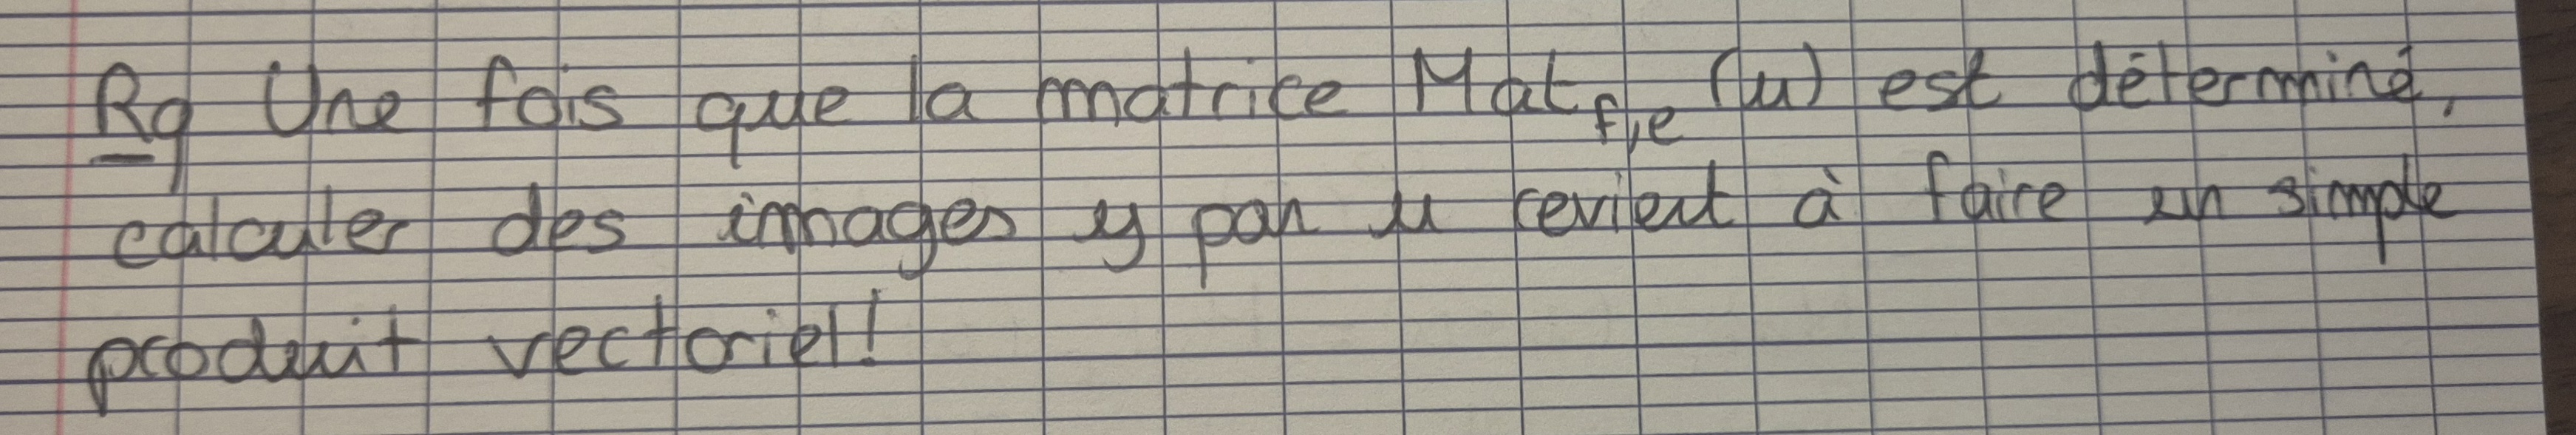 Rq Une fois que la matrice Mat f,e (u) est déterminé,
calculer des images y par u revient à faire un simple
produit vectoriel!